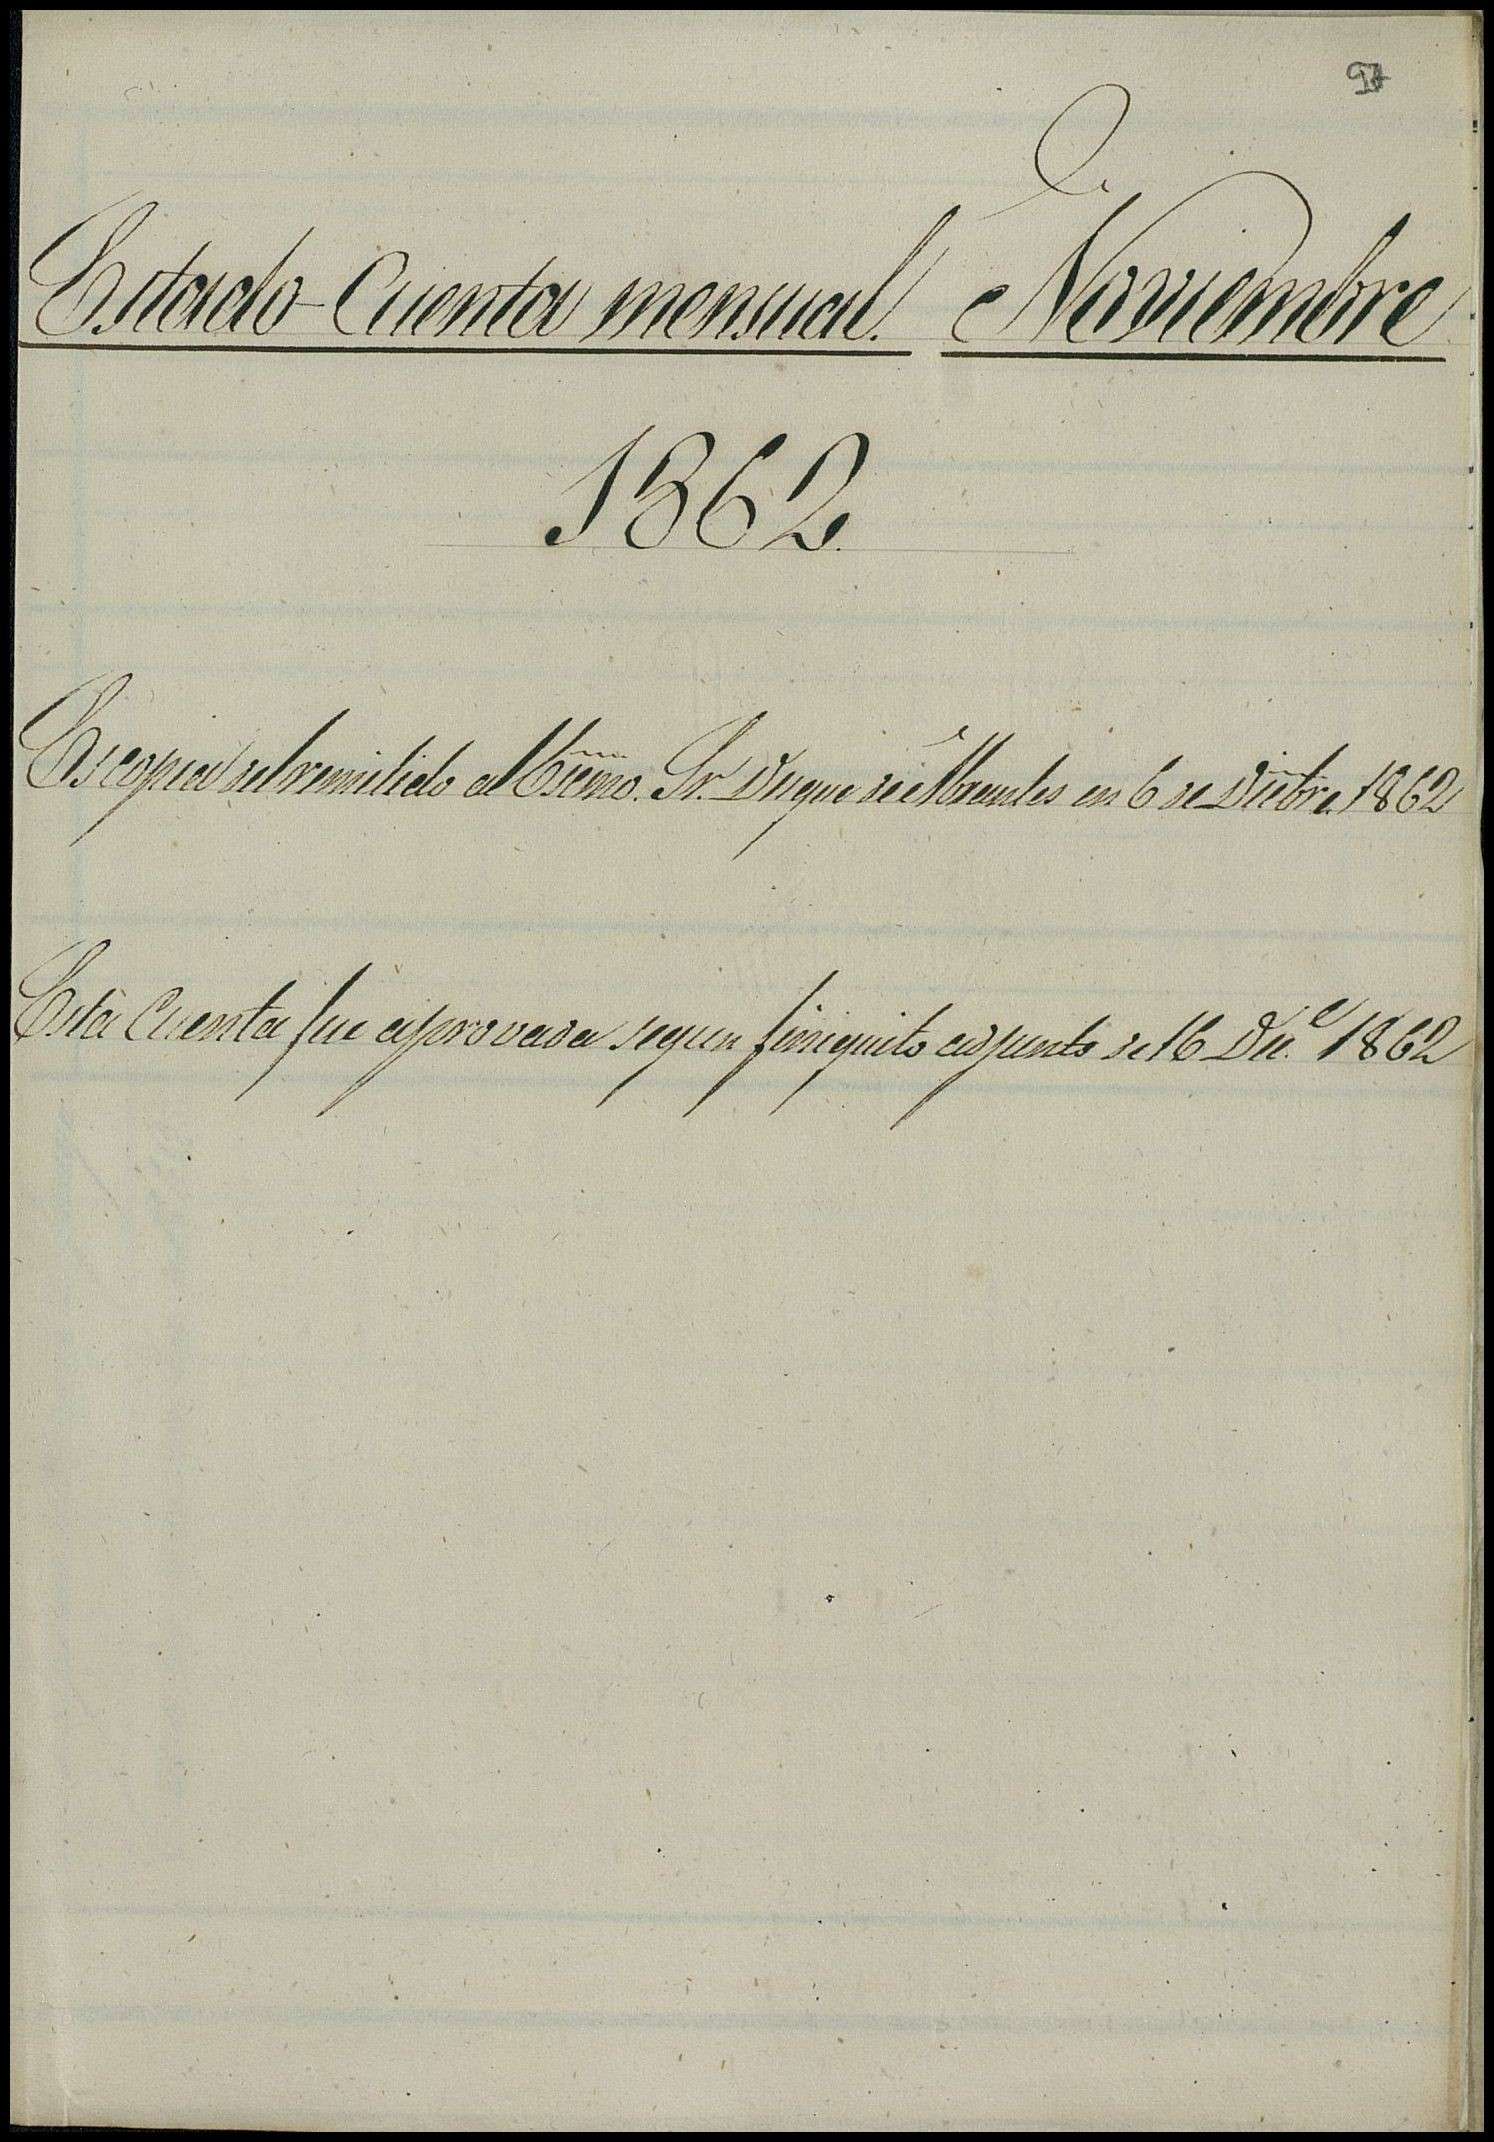 Estado-Cuenta mensual. Noviembre
1862.
Es copia del remitido al Excmo. Sr. Duque de Abrantes en 6 de Dicbre. 1862
Esta Cuenta fue aprovada segun finiquito adjunto de 16 Dic.e 1862